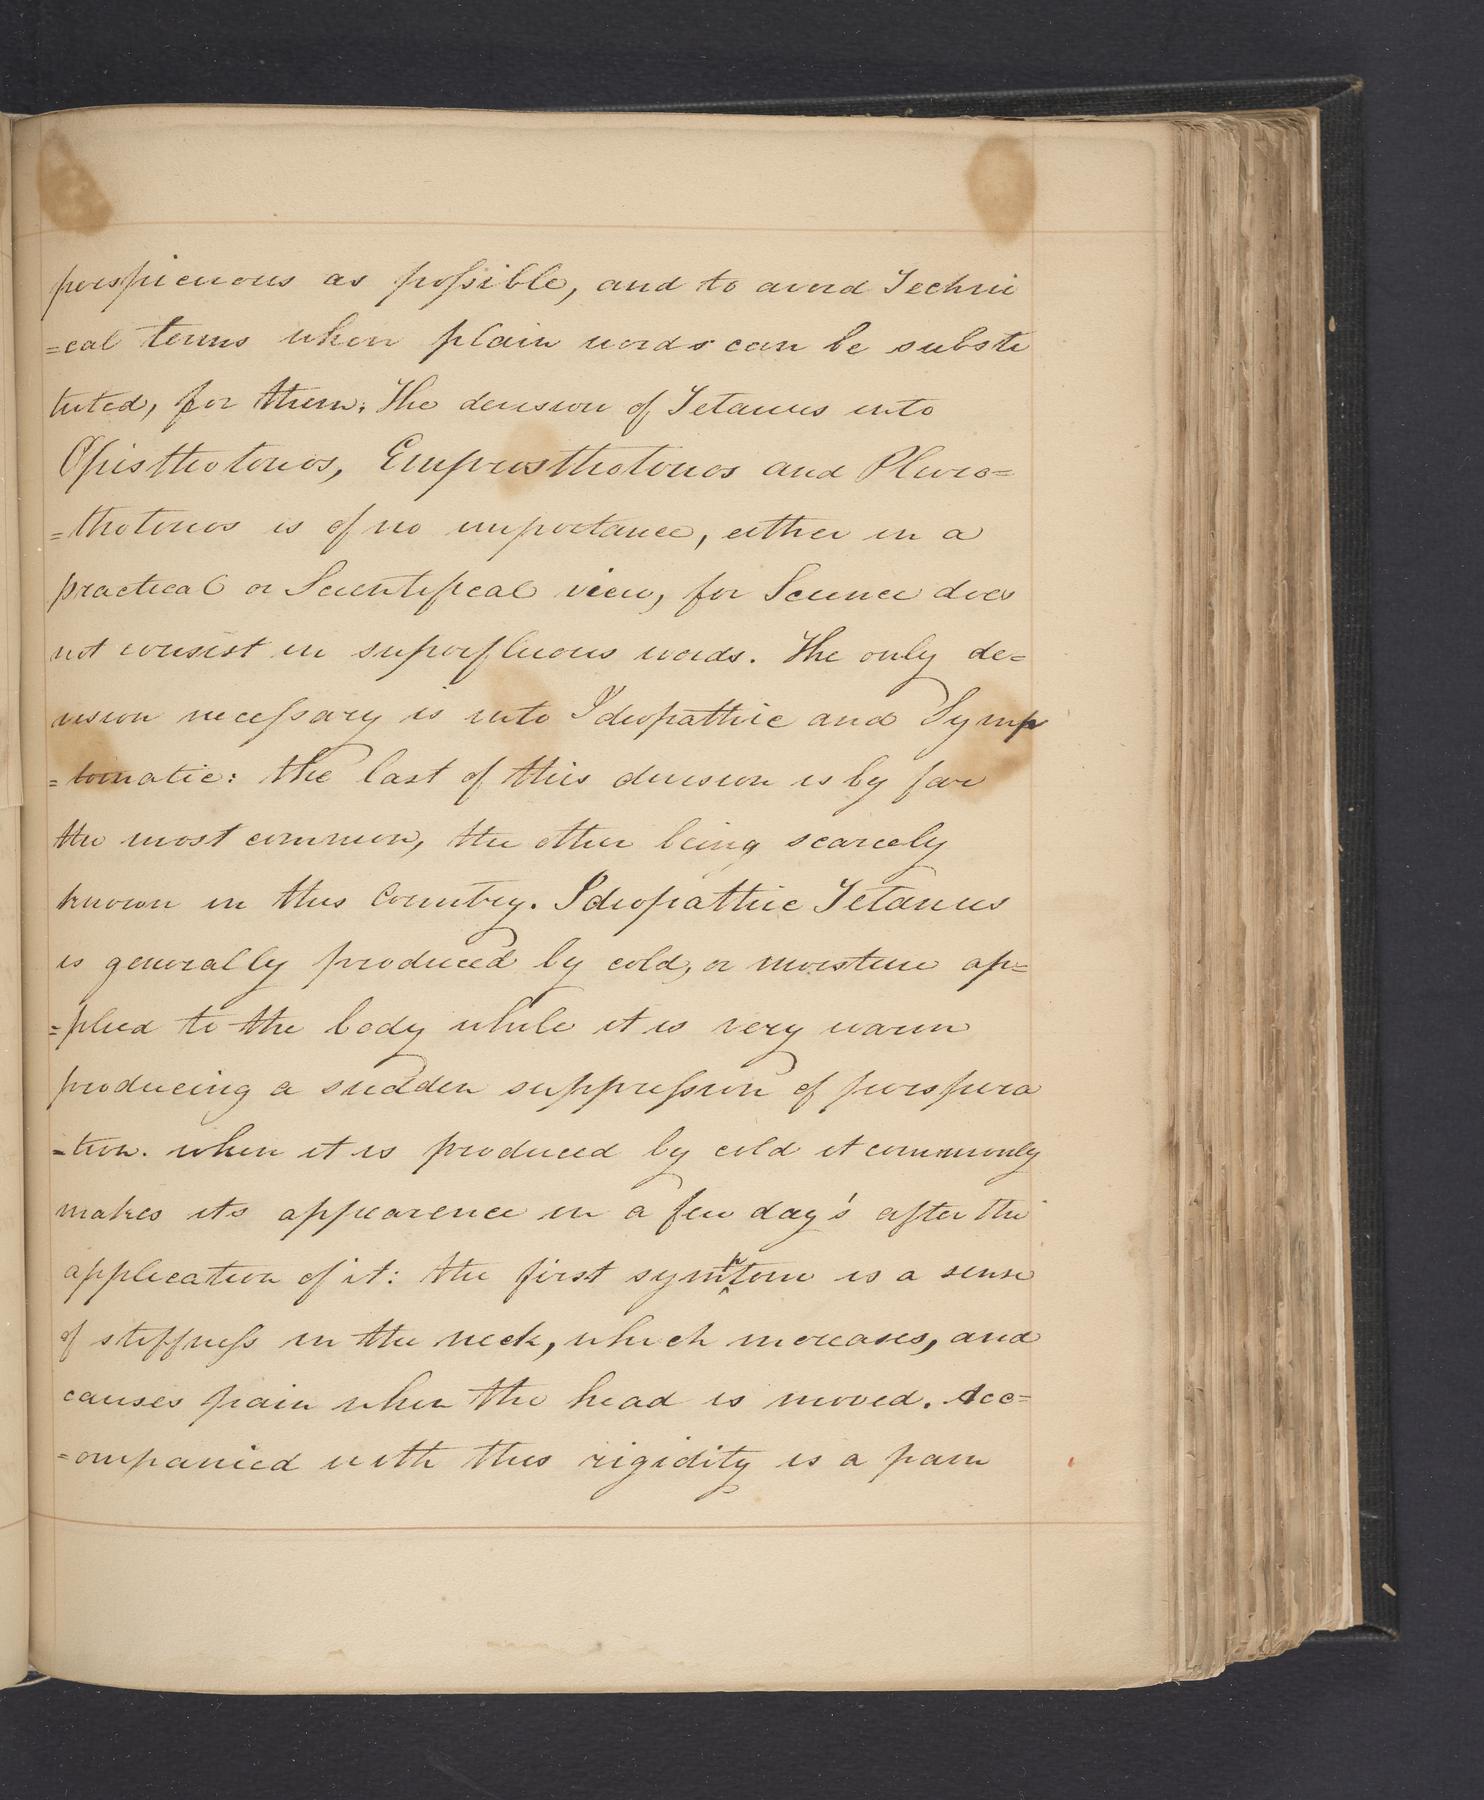 perspicuous as possible, and to avoid Techni
=cal terms when plain words can be substi
tuted, for them. The devision of Tetanus into
Opisthotonos, Emprosthotonos and Pluro=
=thotonos is of no importance, either in a
practical or Scientifical view, for Science does
not consist in superfluous words. The only de=
vision necessary is into Idiopathic and Symp
=tomatic: the last of this devision is by far
the most common, the other being scarcely
known in this Country. Idiopathic Tetanus
is generally produced by cold, or moisture ap=
=plied to the body while it is very warm
producing a sudden suppression of perspira
=tion. when it is produced by cold it commonly
makes its appearence in a few day's after the
application of it: the first symptom is a sense
of stiffness in the neck, which increases, and
causes pain when the head is moved. Acc=
=ompanied with this rigidity is a pain